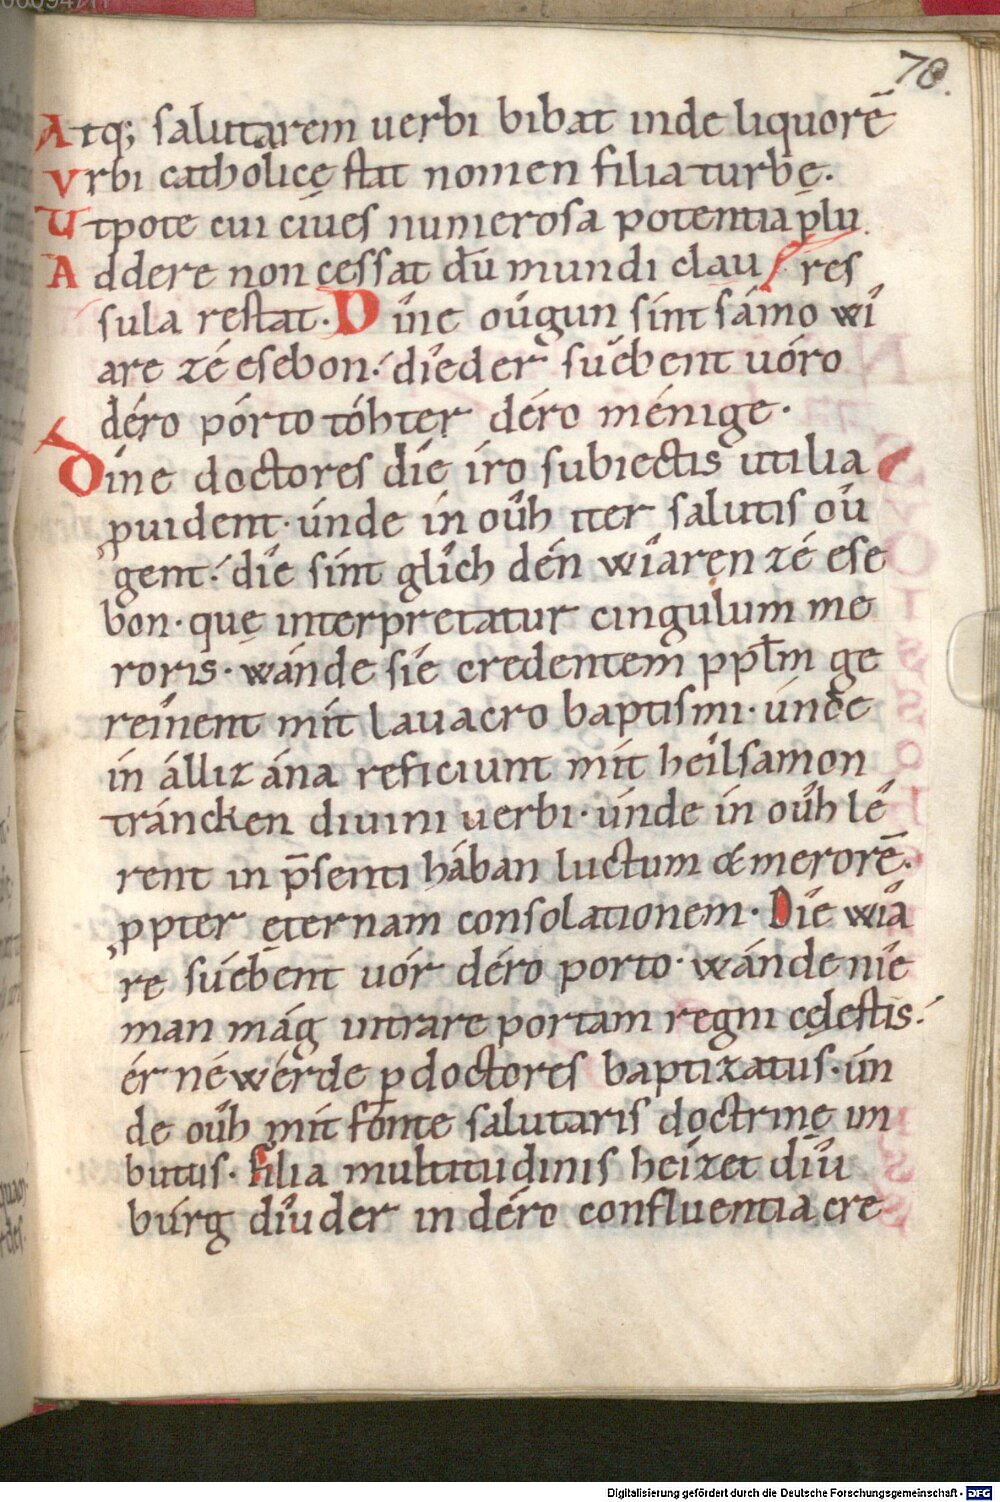 78.
Atq; salutarem uerbi bibat inde liquorē
Vrbi catholicę stat nomen filia turbę.
Utpote cui ciues numerosa potentia p̄lu
Addere non cessat dū mundi clau / res
sula restat. Dîne oûgun sínt sámo wî
are zé esebon. díeder suébent uóro
déro pórto tóhter déro ménige.
Dîne doctores díe íro subiectis utilia
puident. únde ín oûh iter salutis oû
gent. díe sínt glîch dén wîaren zé ese
bon. quę interpretatur cingulum me
roris. wánde síe credentem pp̄lm ge
reînent mít lauacro baptismi. únde
ín állir ána reficiunt mít heîlsamon
tráncken diuini uerbi. únde ín oûh lê
rent in p̄senti hâban luctum & merorē.
ppter ęternam consolationem. Díe wîa
re suébent uór déro porto. wánde nîe
man mág intrare portam regni cęlestis.
ér néwérde ꝑ doctores baptizatus. ún
de oûh mít fonte salutaris doctrinę im
butus. Filia multitudinis heízet díu
búrg díu der in déro confluentia cre
Digitalisierung gefördert durch die Deutsche Forschungsgemeinschaft - DFG